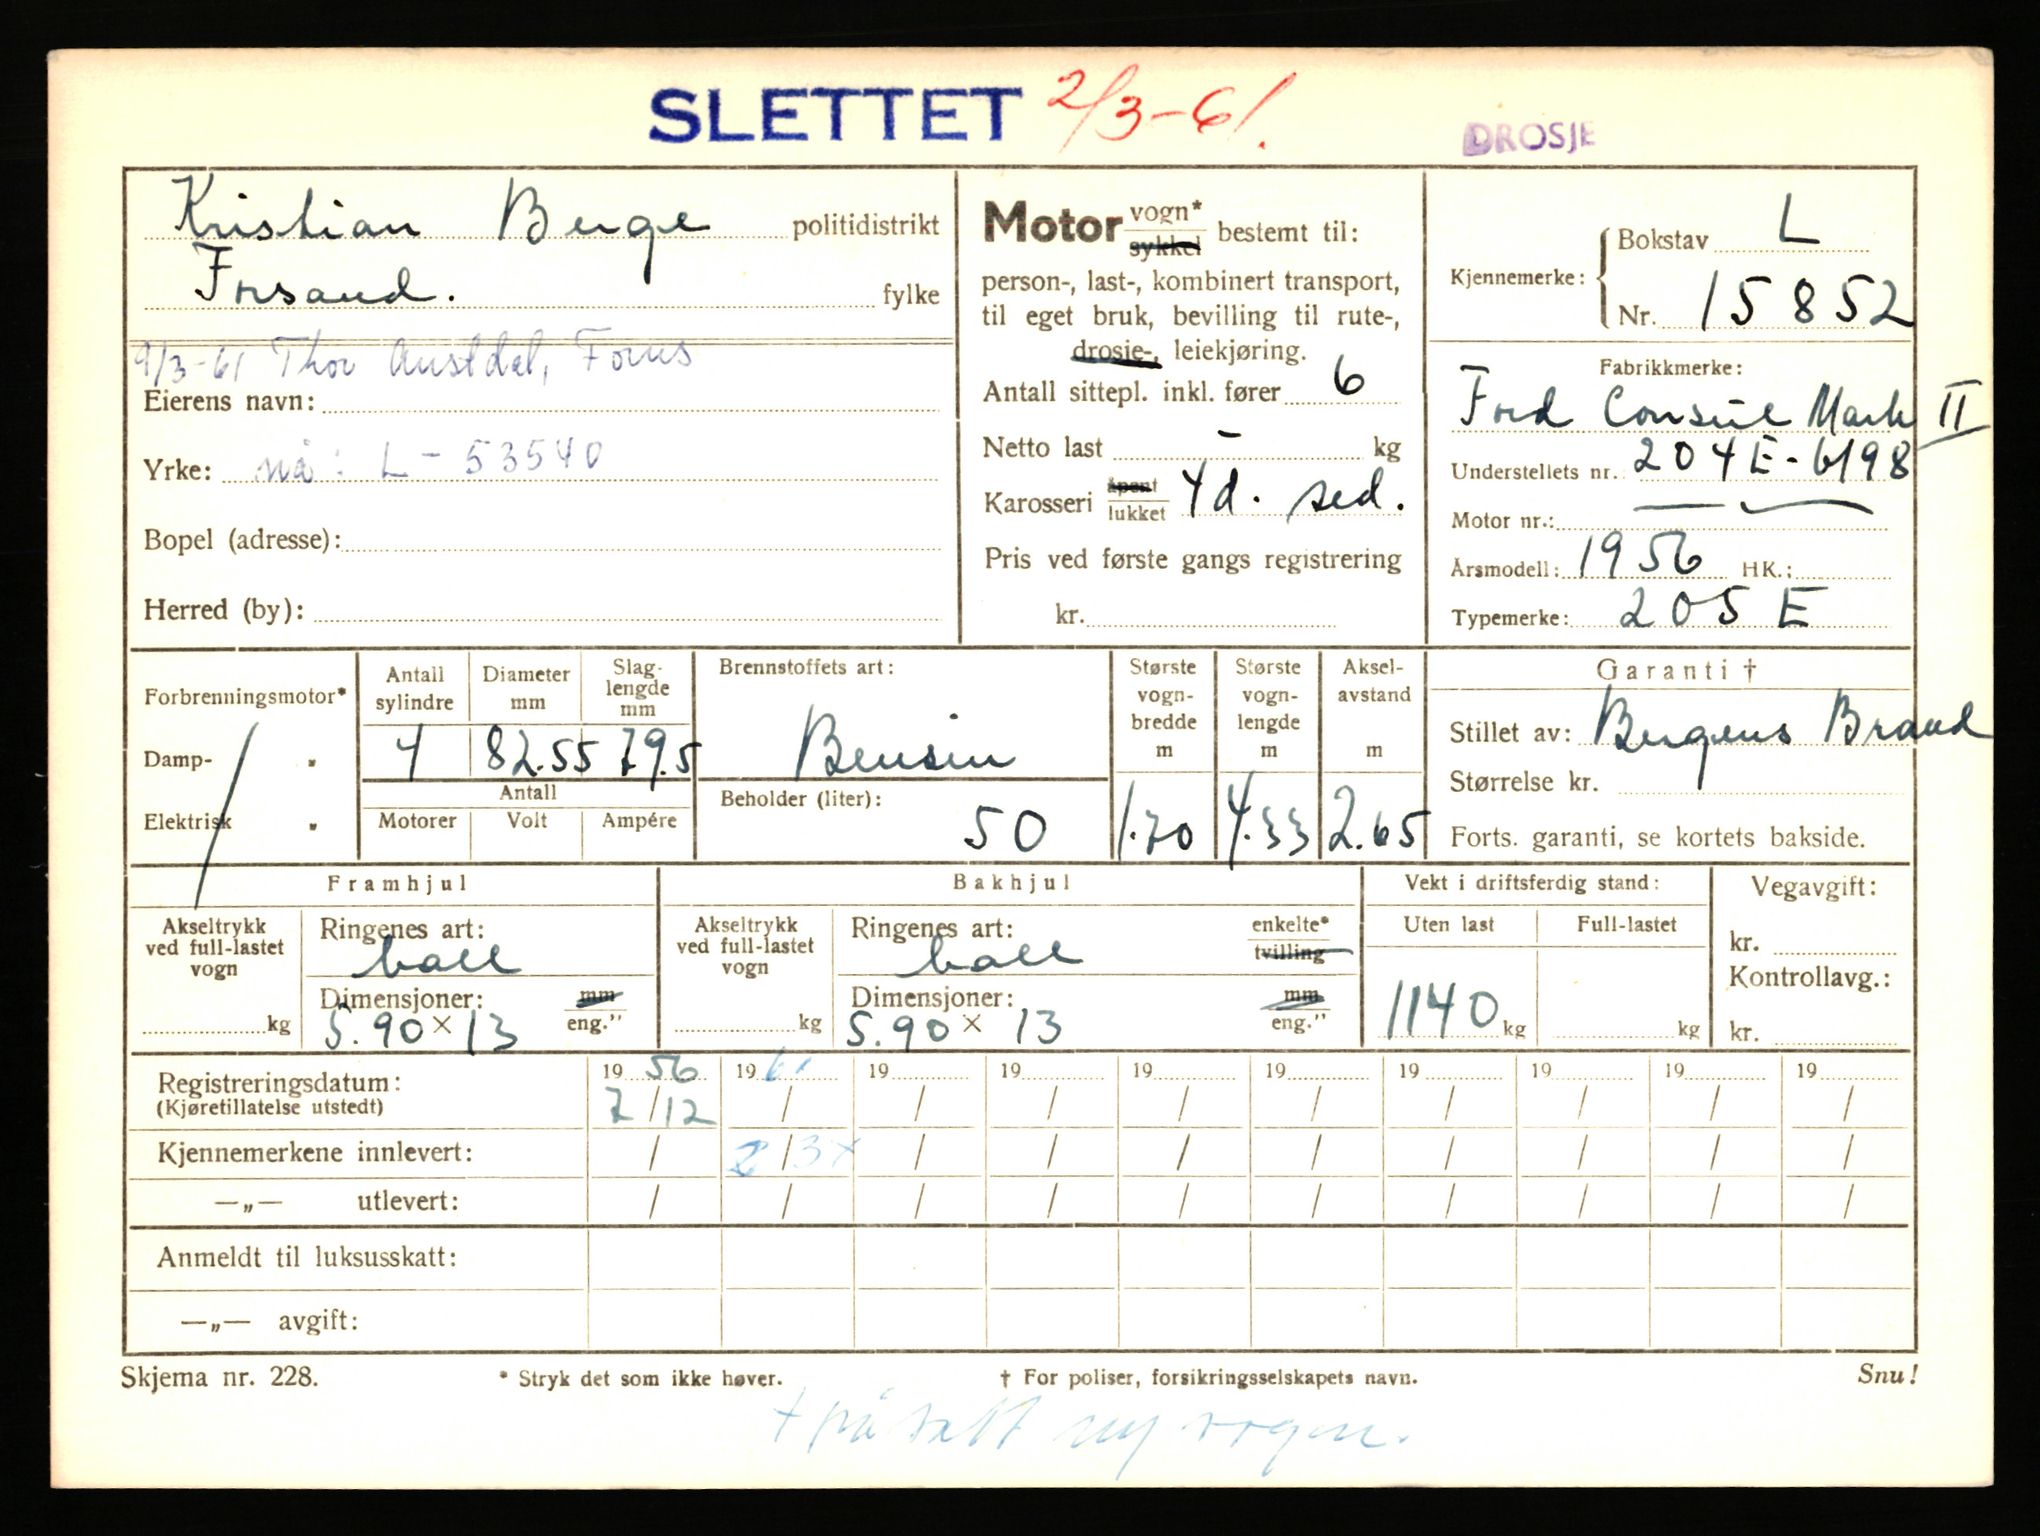 SLETTET 2/3-61.
DROSJE
Kristian Berge politidistrikt
Forsand. fylke
9/3-61 Thor Austdal, Forus
Eierens navn:
Yrke: nå: L-53540
Bopel (adresse):
Herred (by):
Motor vogn* sykkel bestemt til:
person-, last-, kombinert transport,
til eget bruk, bevilling til rute-,
drosje-, leiekjøring.
Antall sittepl. inkl. fører 6
Netto last - kg
Karosseri åpent lukket 4d. sed.
Pris ved første gangs registrering
kr.
Kjennemerke: Bokstav L
Nr. 15852
Fabrikkmerke:
Ford Consul Mark II
Understellets nr. 204E-6198
Motor nr.:
Årsmodell: 1956 HK.:
Typemerke: 205 E
Forbrenningsmotor*
Damp- "
Elektrisk "
Antall sylindre Diameter mm Slag-lengde mm
4 82.55 79.5
Antall
Motorer Volt Ampére
Brennstoffets art:
Bensin
Beholder (liter):
50
Største vogn-bredde m Største vogn-lengde m Aksel-avstand m
1.70 4.33 2.65
Garanti †
Stillet av: Bergens Brand
Størrelse kr.
Forts. garanti, se kortets bakside.
Framhjul
Akseltrykk ved full-lastet vogn
kg
Ringenes art:
ball
Dimensjoner: mm eng."
5.90 x 13
Bakhjul
Akseltrykk ved full-lastet vogn
kg
Ringenes art: enkelte* tvilling
ball
Dimensjoner: mm eng."
5.90 x 13
Vekt i driftsferdig stand:
Uten last Full-lastet
1140 kg kg
Vegavgift:
kr.
Kontrollavg.:
kr.
Registreringsdatum: 19 56 19 61 19 19 19 19 19 19 19 19
(Kjøretillatelse utstedt) 7/12 / / / / / / / / /
Kjennemerkene innlevert: / 2/3x / / / / / / / /
—„— utlevert: / / / / / / / / / /
Anmeldt til luksusskatt:
—„— avgift:
Skjema nr. 228. * Stryk det som ikke høver. † For poliser, forsikringsselskapets navn. Snu!
x påsatt ny vogn.